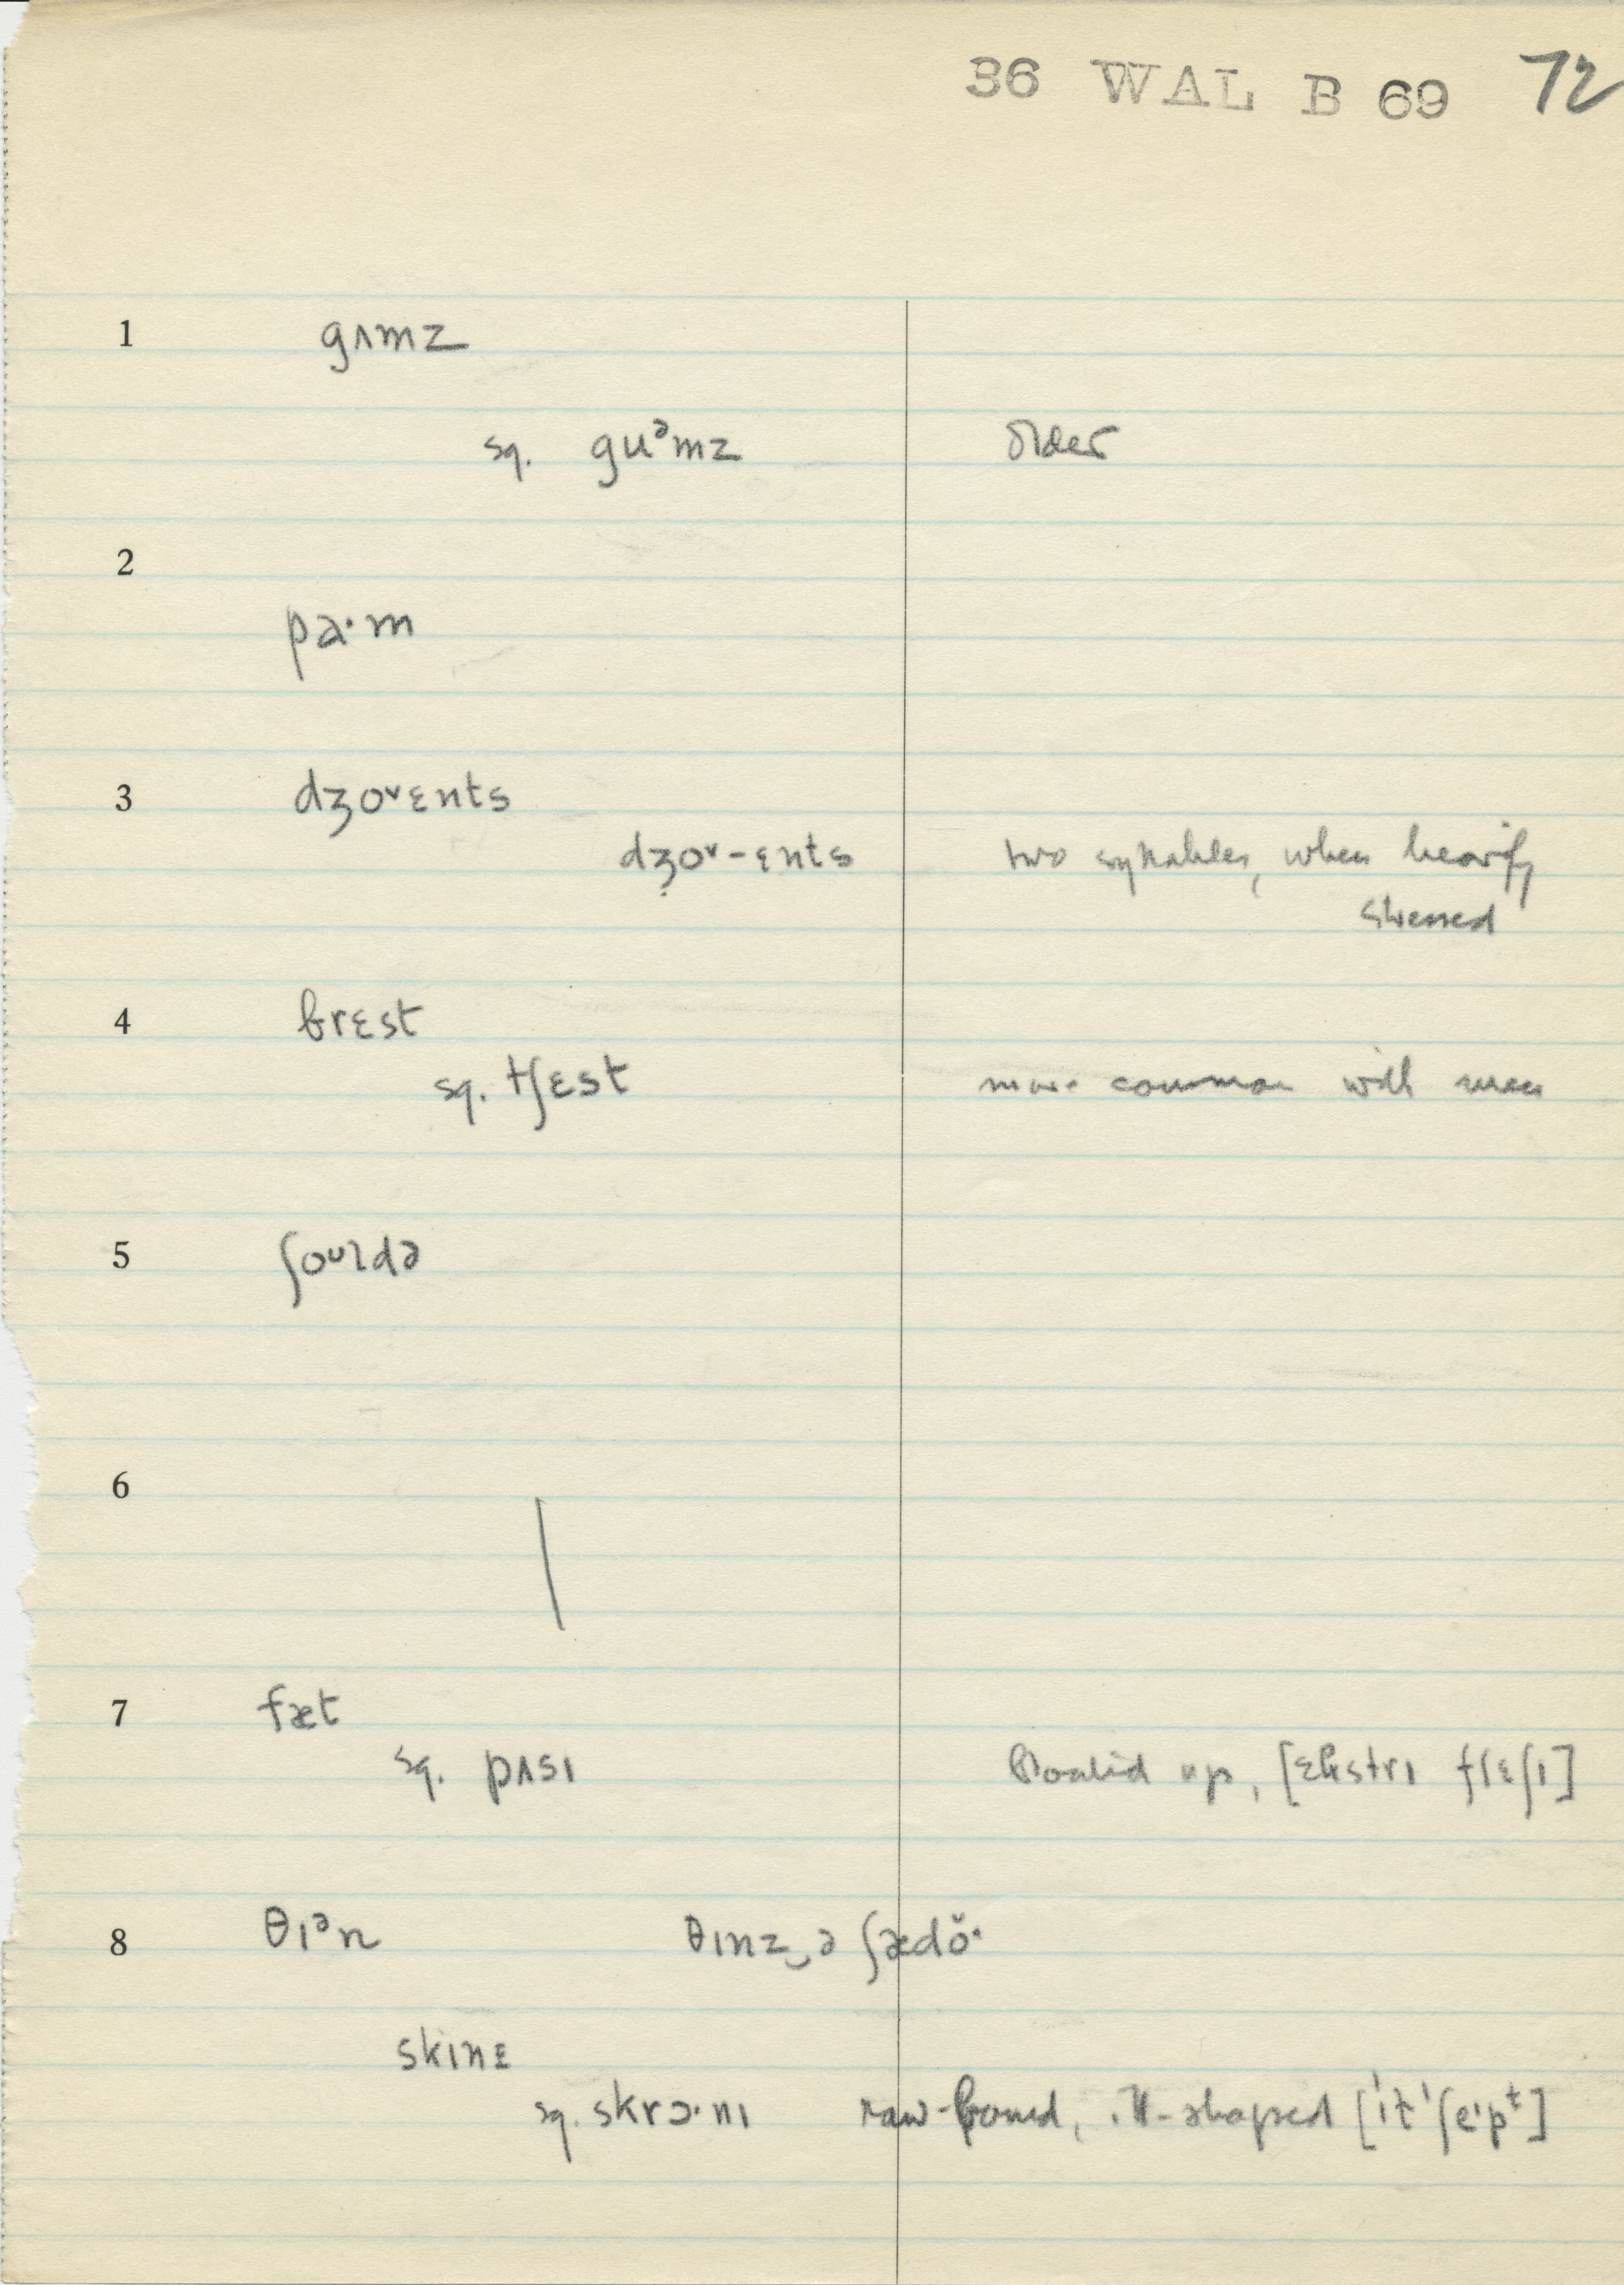 36 WAL B 69 72
1 gʌmz
sq. guᵊmz older
2
pa·m
3 dʒoᵛɛnts
dʒoᵛ-ɛnts two syllables, when heavily
stressed
4 brɛst
sq. tʃɛst more common with men
5 ʃoᵘldə
6
7 fæt
sq. pʌsɪ bloated up, [ɛkstrɪ flɛʃɪ]
8 θɪᵊn θɪnz‿ə ʃædŏ·
skɪnɛ
sq. skrɔ·nɪ raw-boned, ill-shaped